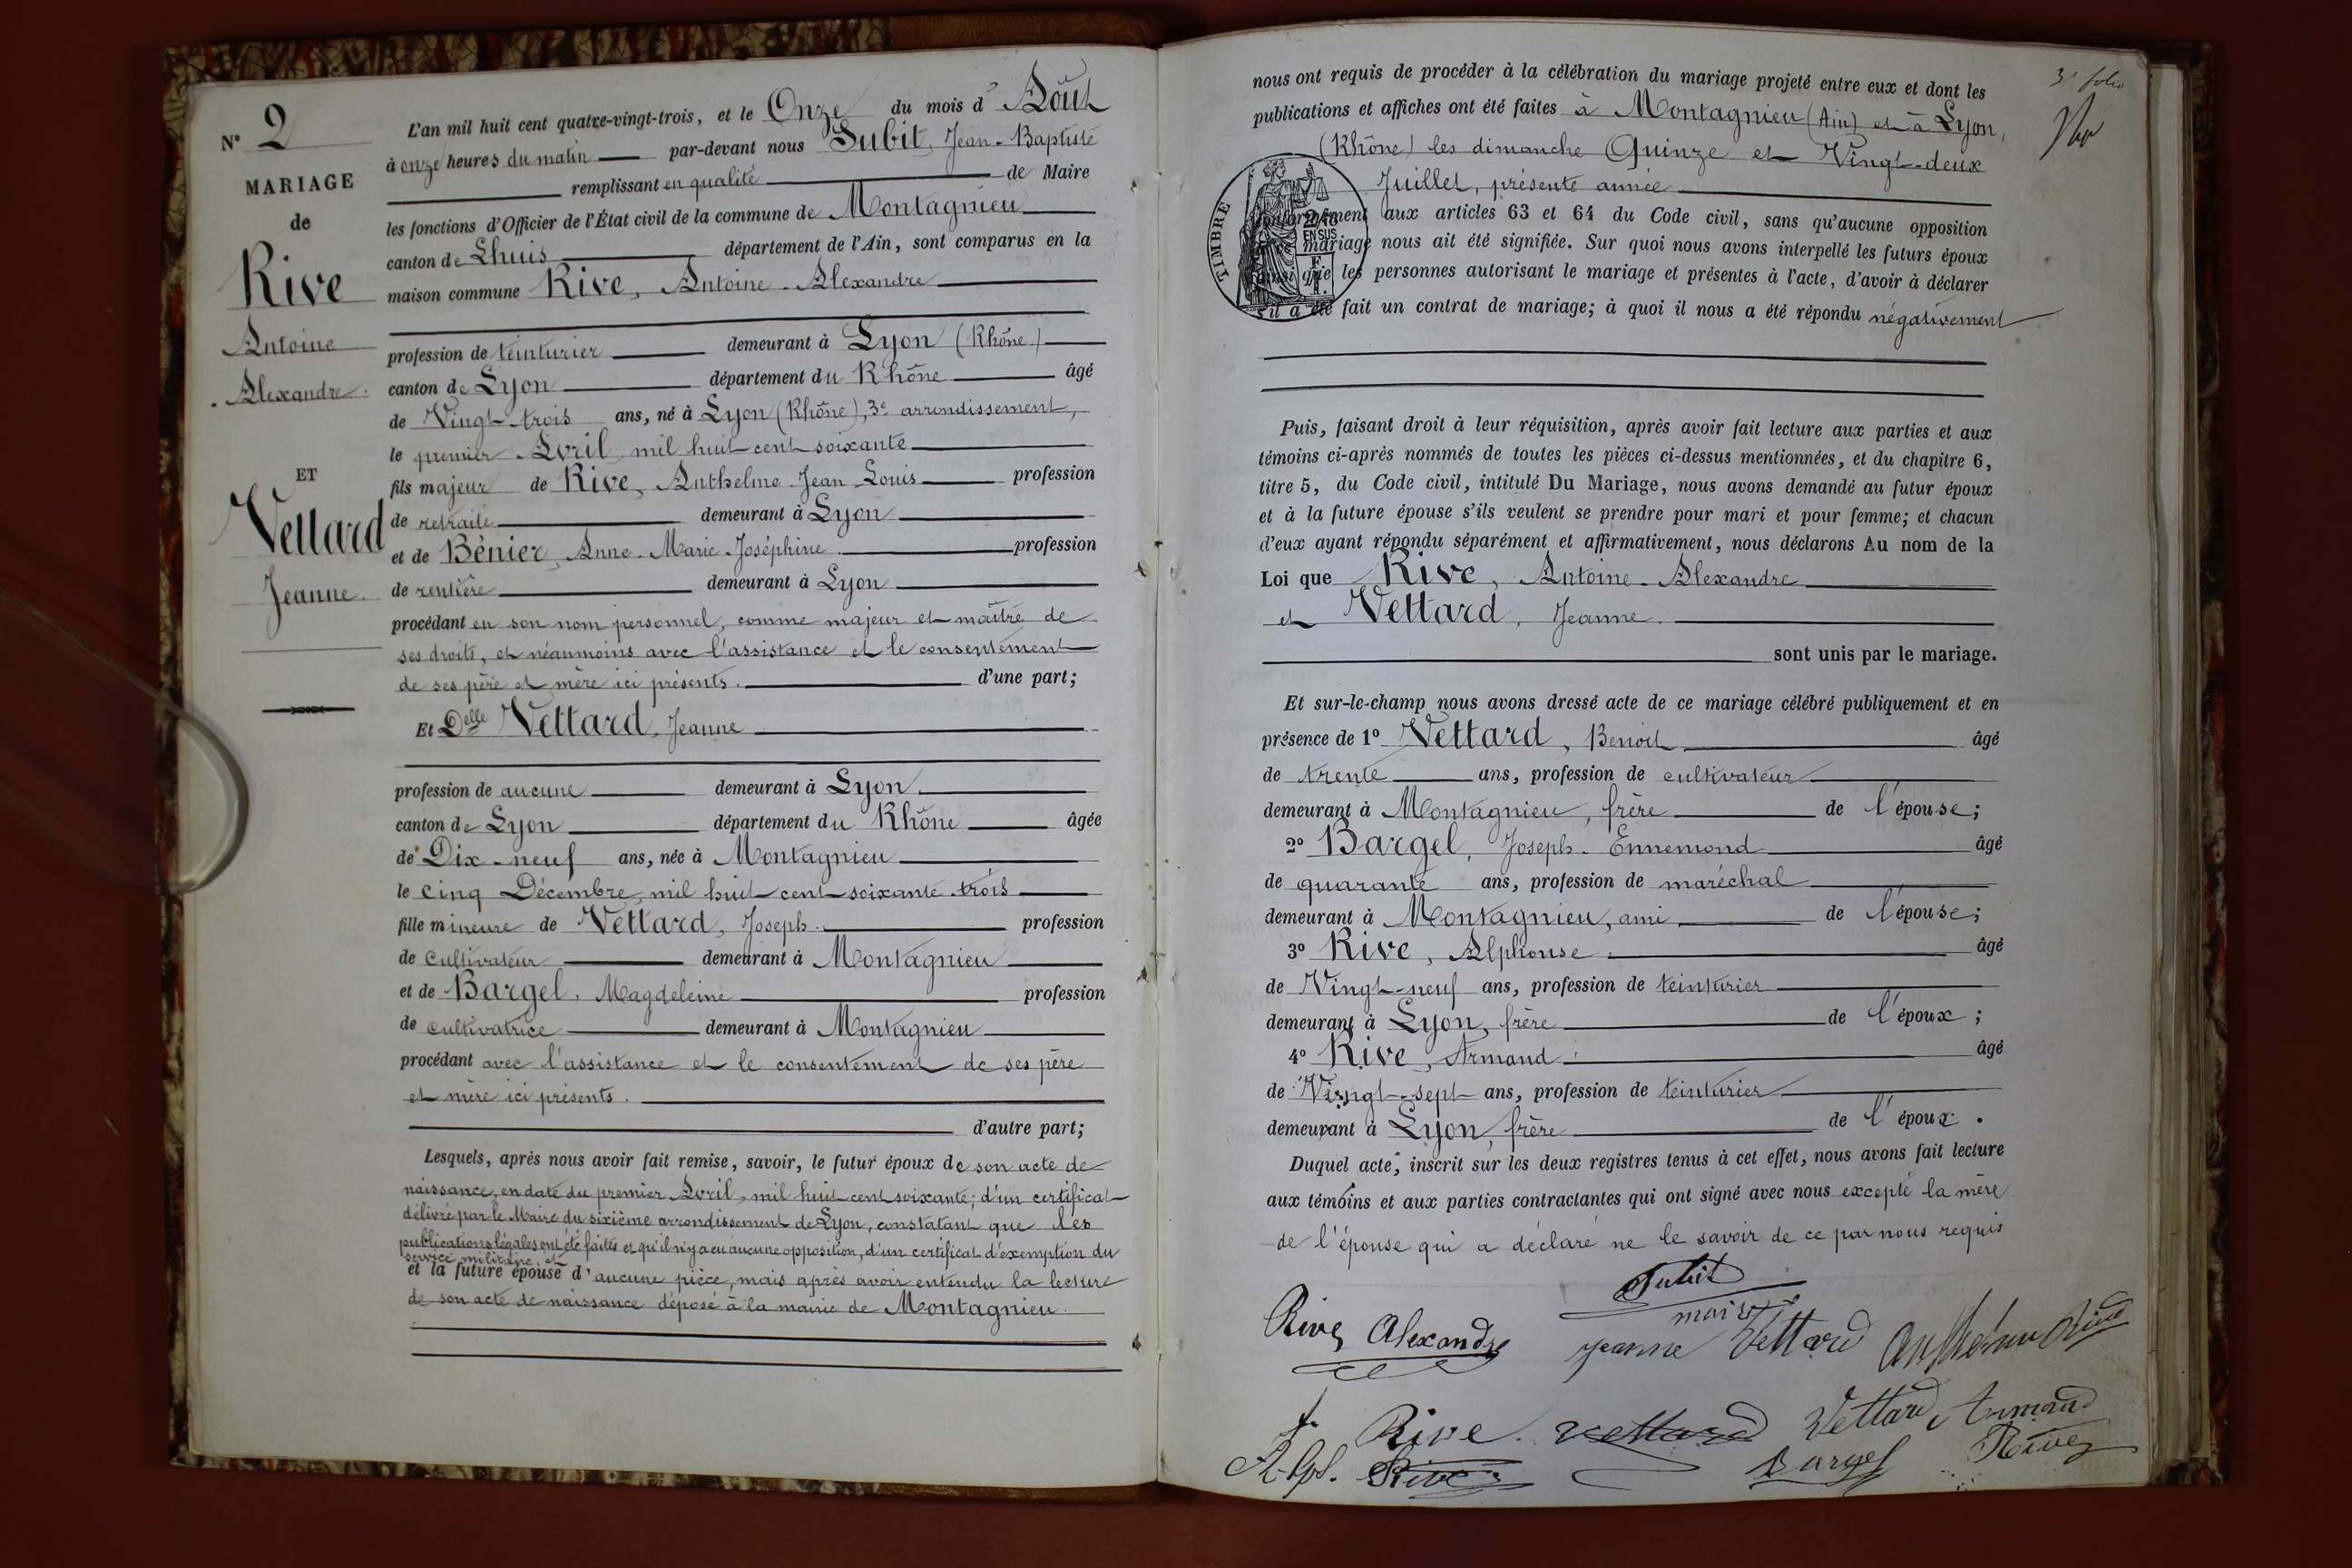 N° 2
MARIAGE
de
Rive
Antoine
Alexandre.
ET
Vettard
Jeanne.
L'an mil huit cent quatre-vingt-trois, et le Onze du mois d' Août
à onze heures du matin par-devant nous Subit, Jean-Baptiste
remplissant en qualité de Maire
les fonctions d'Officier de l'État civil de la commune de Montagnieu
canton de Lhuis département de l'Ain, sont comparus en la
maison commune Rive, Antoine-Alexandre
profession de teinturier demeurant à Lyon (Rhône)
canton de Lyon département du Rhône âgé
de Vingt-trois ans, né à Lyon (Rhône), 3e arrondissement,
le premier Avril mil huit cent soixante
fils majeur de Rive, Anthelme-Jean-Louis profession
de retraité demeurant à Lyon
et de Bénier, Anne-Marie-Joséphine profession
de rentière demeurant à Lyon
procédant en son nom personnel, comme majeur et maître de
ses droits, et néanmoins avec l'assistance et le consentement
de ses père et mère ici présents. d'une part;
Et Delle Vettard, Jeanne
profession de aucune demeurant à Lyon
canton de Lyon département du Rhône âgée
de Dix-neuf ans, née à Montagnieu
le cinq Décembre, mil huit cent soixante-trois
fille mineure de Vettard, Joseph. profession
de cultivateur demeurant à Montagnieu
et de Bargel, Magdeleine profession
de cultivatrice demeurant à Montagnieu
procédant avec l'assistance et le consentement de ses père
et mère ici présents.
d'autre part;
Lesquels, après nous avoir fait remise, savoir, le futur époux de son acte de
naissance, en date du premier Avril, mil huit cent soixante; d'un certificat
délivré par le Maire du sixième arrondissement de Lyon, constatant que les
publications légales ont été faites et qu'il n'y a eu aucune opposition, d'un certificat d'exemption du
service militaire et
et la future épouse d'aucune pièce, mais après avoir entendu la lecture
de son acte de naissance déposé à la mairie de Montagnieu.
3e folio
nous ont requis de procéder à la célébration du mariage projeté entre eux et dont les
publications et affiches ont été faites à Montagnieu (Ain) et à Lyon,
(Rhône) les dimanche Quinze et Vingt-deux
Juillet, présente année
TIMBRE
2/10
EN SUS
conformément aux articles 63 et 64 du Code civil, sans qu'aucune opposition
mariage nous ait été signifiée. Sur quoi nous avons interpellé les futurs époux
ainsi que les personnes autorisant le mariage et présentes à l'acte, d'avoir à déclarer
s'il a été fait un contrat de mariage; à quoi il nous a été répondu négativement
Puis, faisant droit à leur réquisition, après avoir fait lecture aux parties et aux
témoins ci-après nommés de toutes les pièces ci-dessus mentionnées, et du chapitre 6,
titre 5, du Code civil, intitulé Du Mariage, nous avons demandé au futur époux
et à la future épouse s'ils veulent se prendre pour mari et pour femme; et chacun
d'eux ayant répondu séparément et affirmativement, nous déclarons Au nom de la
Loi que Rive, Antoine-Alexandre
et Vettard, Jeanne.
sont unis par le mariage.
Et sur-le-champ nous avons dressé acte de ce mariage célébré publiquement et en
présence de 1° Vettard, Benoit âgé
de trente ans, profession de cultivateur
demeurant à Montagnieu, frère de l'épouse;
2° Bargel, Joseph-Ennemond âgé
de quarante ans, profession de maréchal
demeurant à Montagnieu, ami de l'épouse;
3° Rive, Alphonse âgé
de Vingt-neuf ans, profession de teinturier
demeurant à Lyon, frère de l'époux;
4° Rive, Armand âgé
de Vingt-sept ans, profession de teinturier
demeurant à Lyon, frère de l'époux.
Duquel acte, inscrit sur les deux registres tenus à cet effet, nous avons fait lecture
aux témoins et aux parties contractantes qui ont signé avec nous excepté la mère
de l'épouse qui a déclaré ne le savoir de ce par nous requis
Subit
maire
Rive Alexandre Jeanne Vettard Anthelme Rive
f. Rive. Vettard Vettard Armand
Alph. Rive Bargel Rive